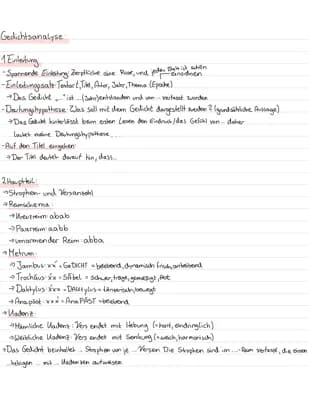 Gedichtsanalyse
1 Einleitung
- Spannende Einleitung: Zerpflücke eine Rose, und jedes Blatt ist schön
- Einleitungssatz: Textart, Titel, Autor, Jahr, Thema (Epoche)
→ Das Gedicht „..." ist ... (Jahr) entstanden und von ... verfasst worden
- Deutungshypothese: Was soll mit dem Gedicht dargestellt werden? (grundsätzliche Aussage)
→ Das Gedicht hinterlässt beim ersten Lesen den Eindruck/das Gefühl von ... daher
lautet meine Deutungshypothese ...
- Auf den Titel eingehen
→ Der Titel deutet darauf hin, dass...
2 Hauptteil:
→ Strophen- und Versanzahl
→ Reimschema:
→ Kreuzreim: abab
→ Paarreim: aabb
→ umarmender Reim: abba
→ Metrum:
→ Jambus: xx́ = GeDICHT = belebend, dynamisch
→ Trochäus: x́x = =
→ Daktylus: x́xx = DAKtylus =
→ Anapäst: xxx́ = AnaPÄST = belebend
→ Kadenz:
→ Männliche Kadenz: Vers endet mit Hebung (= hart, eindringlich)
→ Weibliche Kadenz: Vers endet mit Senkung (= weich, harmonisch)
→ Das Gedicht beinhaltet ... Strophen von je ... Versen. Die Strophen sind im ...-Reim verfasst, die einen
... mit ... Kadenzen aufweisen.